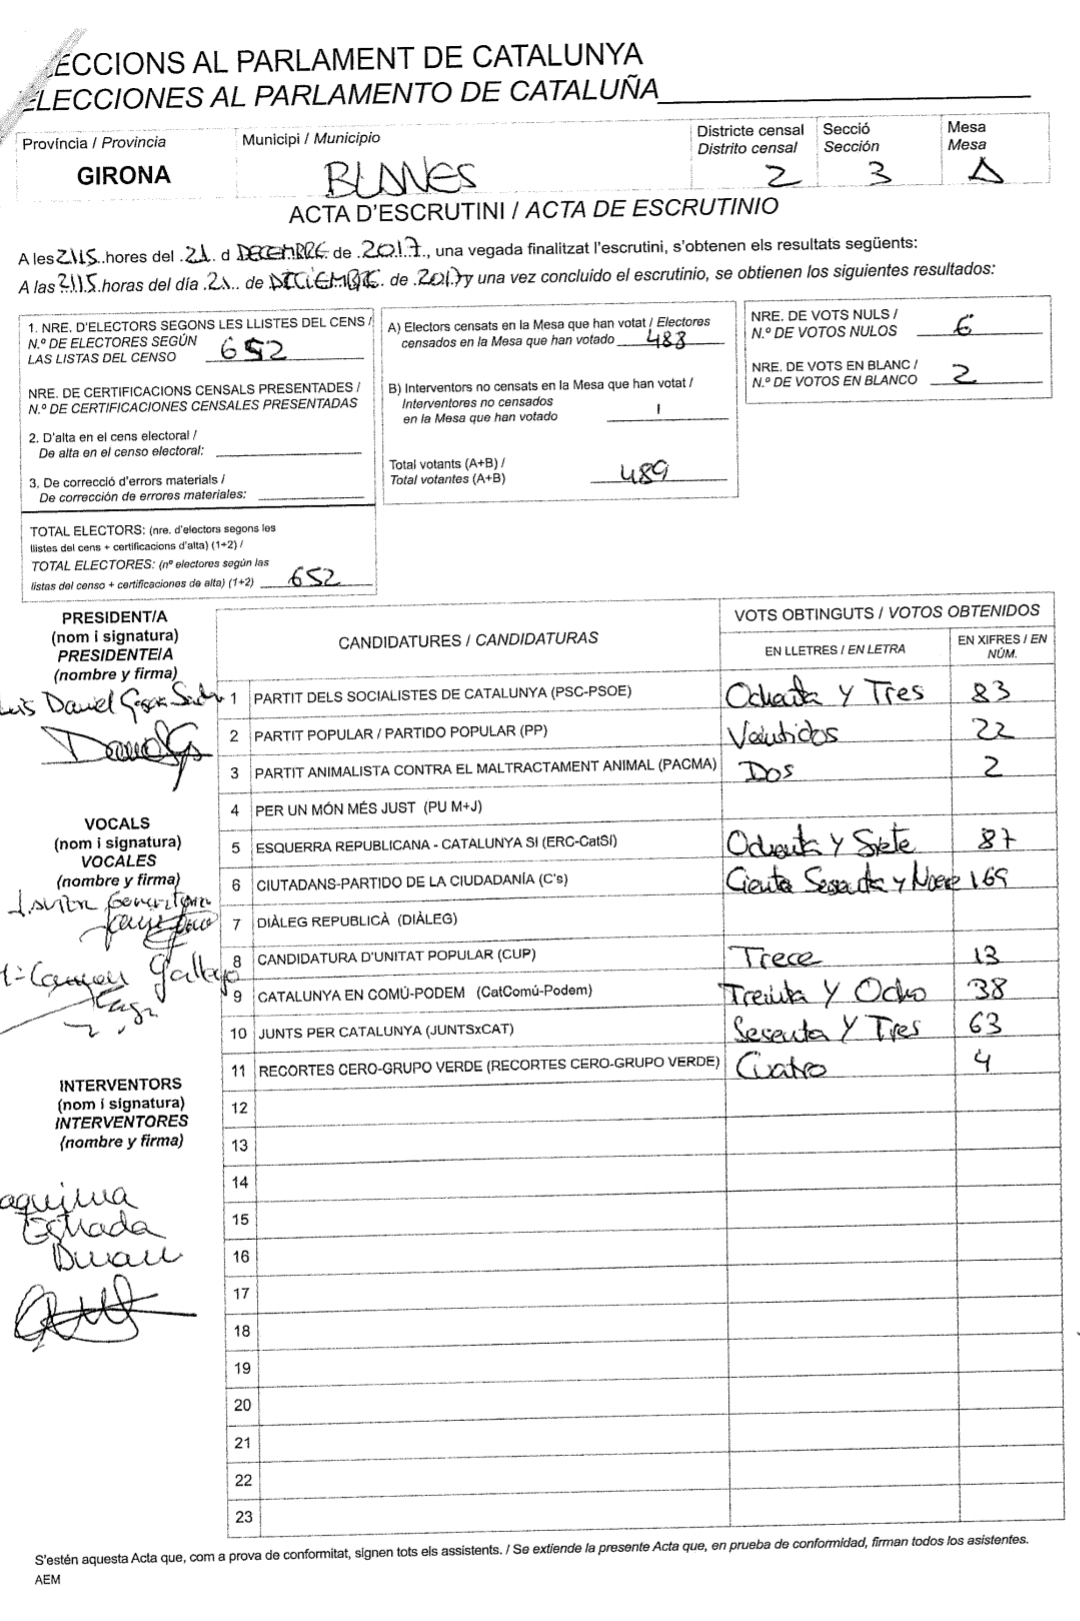 ECCIONS AL PARLAMENT DE CATALUNYA
ELECCIONES AL PARLAMENTO DE CATALUÑA
Província / Provincia
GIRONA
Municipi / Municipio
BLANES
Districte censal
Distrito censal
2
Secció
Sección
3
Mesa
Mesa
A
ACTA D'ESCRUTINI / ACTA DE ESCRUTINIO
A les 2115 hores del 21 d DECEMBRE de 2017, una vegada finalitzat l'escrutini, s'obtenen els resultats següents:
A las 2115 horas del día 21 de DICIEMBRE de 2017 y una vez concluido el escrutinio, se obtienen los siguientes resultados:
1. NRE. D'ELECTORS SEGONS LES LLISTES DEL CENS /
N.º DE ELECTORES SEGÚN
LAS LISTAS DEL CENSO 652
NRE. DE CERTIFICACIONS CENSALS PRESENTADES /
N.º DE CERTIFICACIONES CENSALES PRESENTADAS
2. D'alta en el cens electoral /
De alta en el censo electoral:
3. De correcció d'errors materials /
De corrección de errores materiales:
TOTAL ELECTORS: (nre. d'electors segons les
llistes del cens + certificacions d'alta) (1+2) /
TOTAL ELECTORES: (nº electores según las
listas del censo + certificaciones de alta) (1+2) 652
A) Electors censats en la Mesa que han votat / Electores
censados en la Mesa que han votado 488
B) Interventors no censats en la Mesa que han votat /
Interventores no censados
en la Mesa que han votado 1
Total votants (A+B) /
Total votantes (A+B) 489
NRE. DE VOTS NULS /
N.º DE VOTOS NULOS 6
NRE. DE VOTS EN BLANC /
N.º DE VOTOS EN BLANCO 2
PRESIDENT/A
(nom i signatura)
PRESIDENTE/A
(nombre y firma)
Luis Daniel
VOCALS
(nom i signatura)
VOCALES
(nombre y firma)
Carmen Gallego
INTERVENTORS
(nom i signatura)
INTERVENTORES
(nombre y firma)
aquina
Estrada
Duran
CANDIDATURES / CANDIDATURAS
VOTS OBTINGUTS / VOTOS OBTENIDOS
EN LLETRES / EN LETRA
EN XIFRES / EN
NÚM.
1 PARTIT DELS SOCIALISTES DE CATALUNYA (PSC-PSOE) Ochenta y Tres 83
2 PARTIT POPULAR / PARTIDO POPULAR (PP) Veintidos 22
3 PARTIT ANIMALISTA CONTRA EL MALTRACTAMENT ANIMAL (PACMA) Dos 2
4 PER UN MÓN MÉS JUST (PU M+J)
5 ESQUERRA REPUBLICANA - CATALUNYA SI (ERC-CatSí) Ochenta y Siete 87
6 CIUTADANS-PARTIDO DE LA CIUDADANÍA (C's) Ciento Sesenta y Nueve 169
7 DIÀLEG REPUBLICÀ (DIÀLEG)
8 CANDIDATURA D'UNITAT POPULAR (CUP) Trece 13
9 CATALUNYA EN COMÚ-PODEM (CatComú-Podem) Treinta y Ocho 38
10 JUNTS PER CATALUNYA (JUNTSxCAT) Sesenta Y Tres 63
11 RECORTES CERO-GRUPO VERDE (RECORTES CERO-GRUPO VERDE) Cuatro 4
12
13
14
15
16
17
18
19
20
21
22
23
S'estén aquesta Acta que, com a prova de conformitat, signen tots els assistents. / Se extiende la presente Acta que, en prueba de conformidad, firman todos los asistentes.
AEM